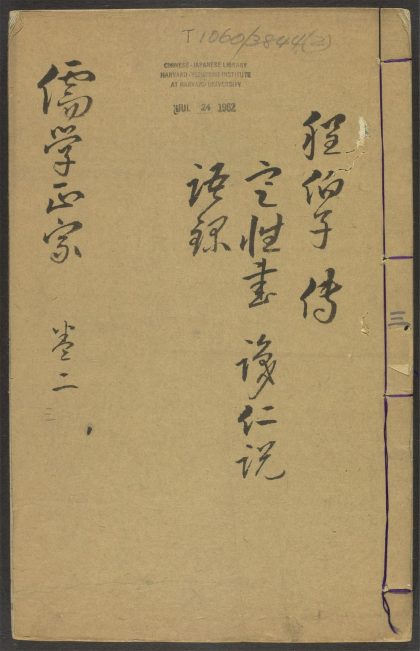 T1060/3844(2)
CHINESE-JAPANESE LIBRARY
HARVARD-YENCHING INSTITUTE
AT HARVARD UNIVERSITY
JUL 24 1962
程伯子 传
定性書 識仁说
语録
儒学正宗 卷二
三